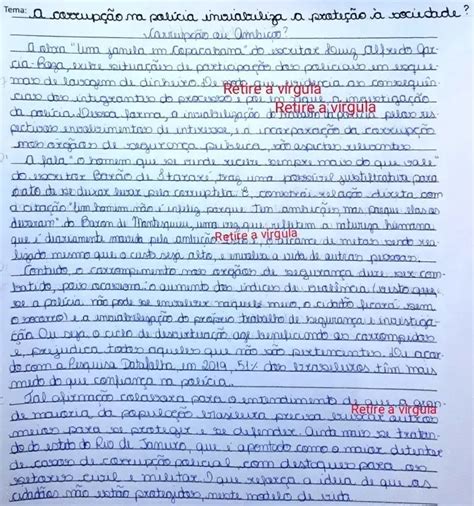 Tema: A corrupção na polícia inviabiliza a proteção à sociedade?
Corrupção ou ambição?
A obra "Uma janela em Copacabana" do escritor Luiz Alfredo Gar-
cia-Roza, exibe situações de participação dos policiais em esque-
mas de lavagem de dinheiro. De modo que, evidencia as consequên-
Retire a vírgula
cias dos integrantes do processo e põe em a investigação
Retire a vírgula
da polícia. Dessa forma, a inviabilização do pelos res
pectivos envolvimentos de interesse, e a incorporação da corrupção
nos órgãos de segurança pública, são aspectos relevantes.
A fala "o homem que se vende recebe sempre mais do que vale"
do escritor Barão de Itararé, traz uma possível
para o ato de se deixar levar pela corruptela. E, constrói relação direta com
a citação "Um homem não é infeliz porque tem ambições, mas porque elas o
devoram" do Baron de Montesquieu, uma vez que refletem a natureza humana
que é diariamente movida pela ambição de metas sendo rea-
Retire a vírgula
lizado mesmo que o custo seja alto, e envolva a vida de outras pessoas.
Contudo, o corrompimento nos órgãos de segurança deve ser com-
batido, pois ocasiona: o aumento dos índices de violência (visto que,
se a polícia não pode se envolver naquele meio, o cidadão ficará sem
o socorro) e a inviabilização do próprio trabalho de segurança e investiga-
ção. Ou seja, o ciclo de beneficiando os corrompidos
e, prejudica todos aqueles que não são pertencentes. De acor
do com a Pesquisa Datafolha, em 2019, 51% dos brasileiros têm mais
medo do que confiança na polícia.
Tal afirmação colabora para o entendimento de que, a gran-
Retire a vírgula
de maioria da população brasileira precisa buscar outros
meios para se proteger e se defender. Ainda mais se tratan-
do do estado do Rio de Janeiro, que é apontado como o maior detentor
de casos de corrupção policial, com destaques para os
setores civil e militar. O que reforça a ideia de que os
cidadãos não estão protegidos, neste modelo de vida.